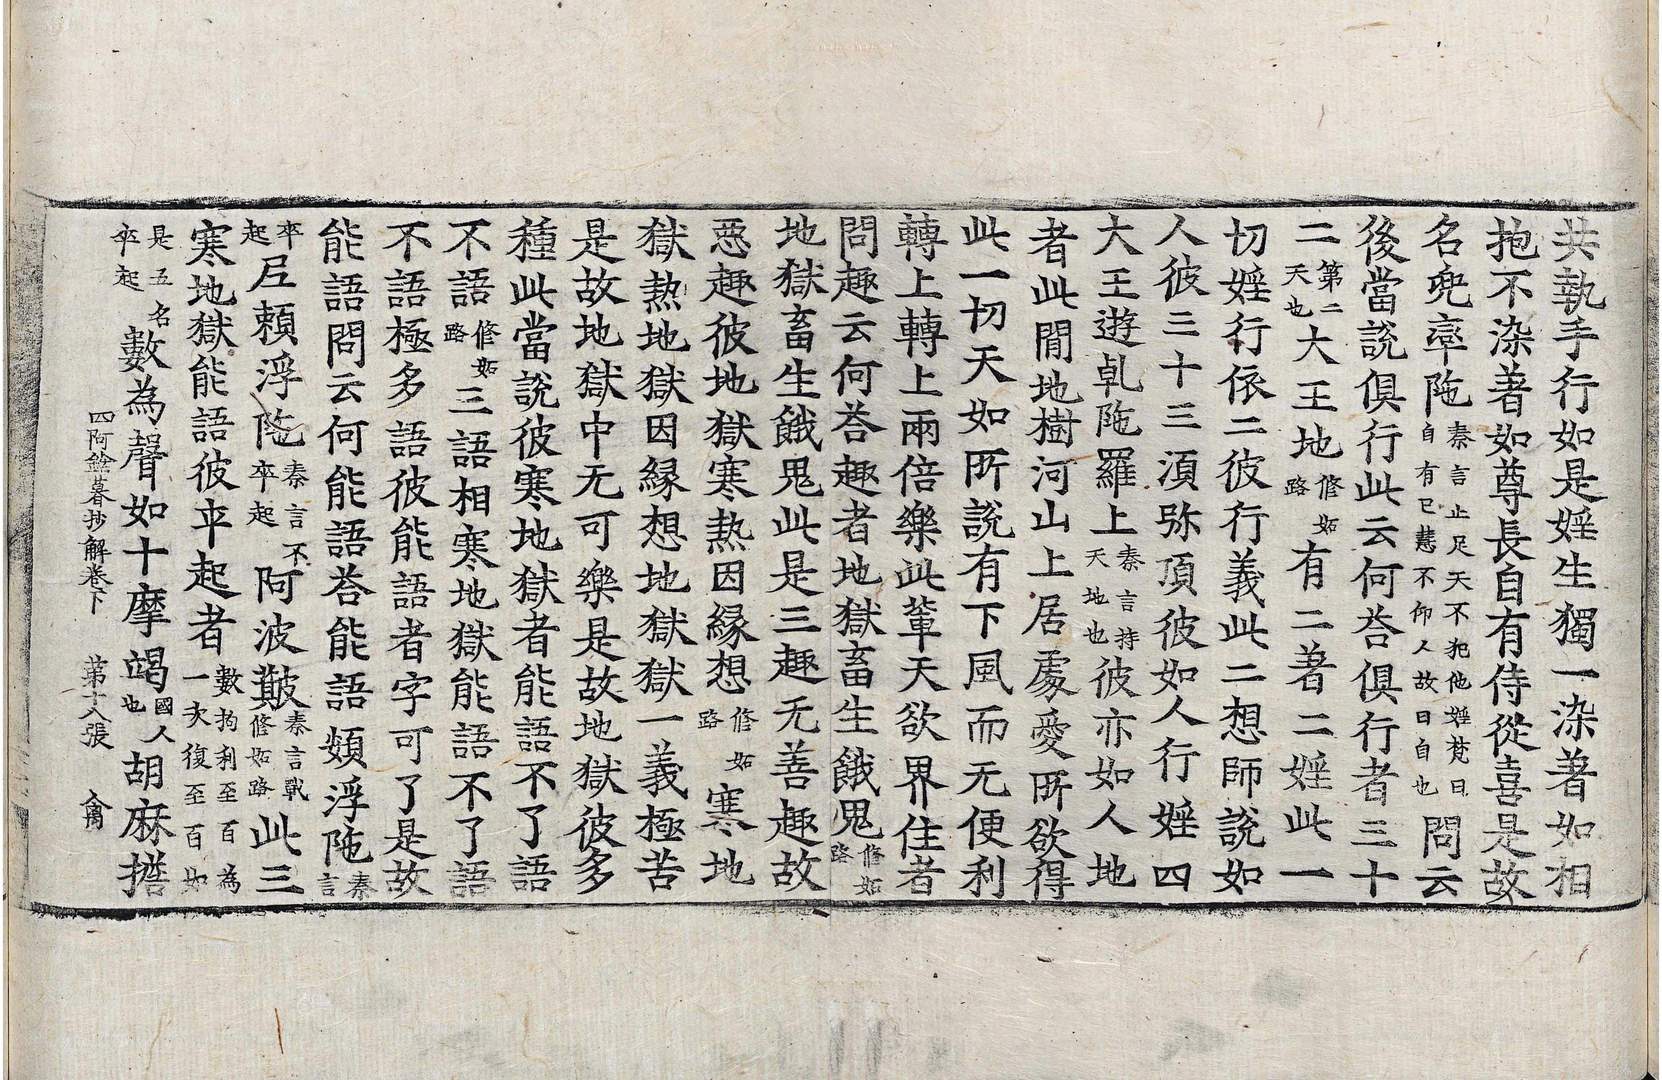 共執手行如是婬生獨一染著如相
抱不染著如尊長自有侍從喜是故
名兜率陁秦言止足天不犯他婬梵曰自有已慧不仰人故曰自也問云
後當說俱行此云何荅俱行者三十
二第二天也大王地修妬路有二著二婬此一
切婬行依二彼行義此二想師說如
人彼三十三湏弥頂彼如人行婬四
大王遊乹陁羅上秦言持天地也彼亦如人地
者此閒地樹河山上居處愛所欲得
此一切天如所說有下風而无便利
轉上轉上兩倍樂此軰天欲界住者
問趣云何荅趣者地獄畜生餓鬼修妬路
地獄畜生餓鬼此是三趣无善趣故
惡趣彼地獄寒熱因緣想修妬路寒地
獄熱地獄因緣想地獄獄一義極苦
是故地獄中无可樂是故地獄彼多
種此當說彼寒地獄者能語不了語
不語修妬路三語相寒地獄能語不了語
不語極多語彼能語者字可了是故
能語問云何能語荅能語頞浮陁秦言
卒起𡰱賴浮陁秦言不卒起阿波𩑶秦言戰修妬路此三
寒地獄能語彼卒起者數拘利至百為一次復至百如
是五名卒起數為聲如十摩竭國人也胡麻㨾
四阿鋡暮抄解卷下 第十八張 禽